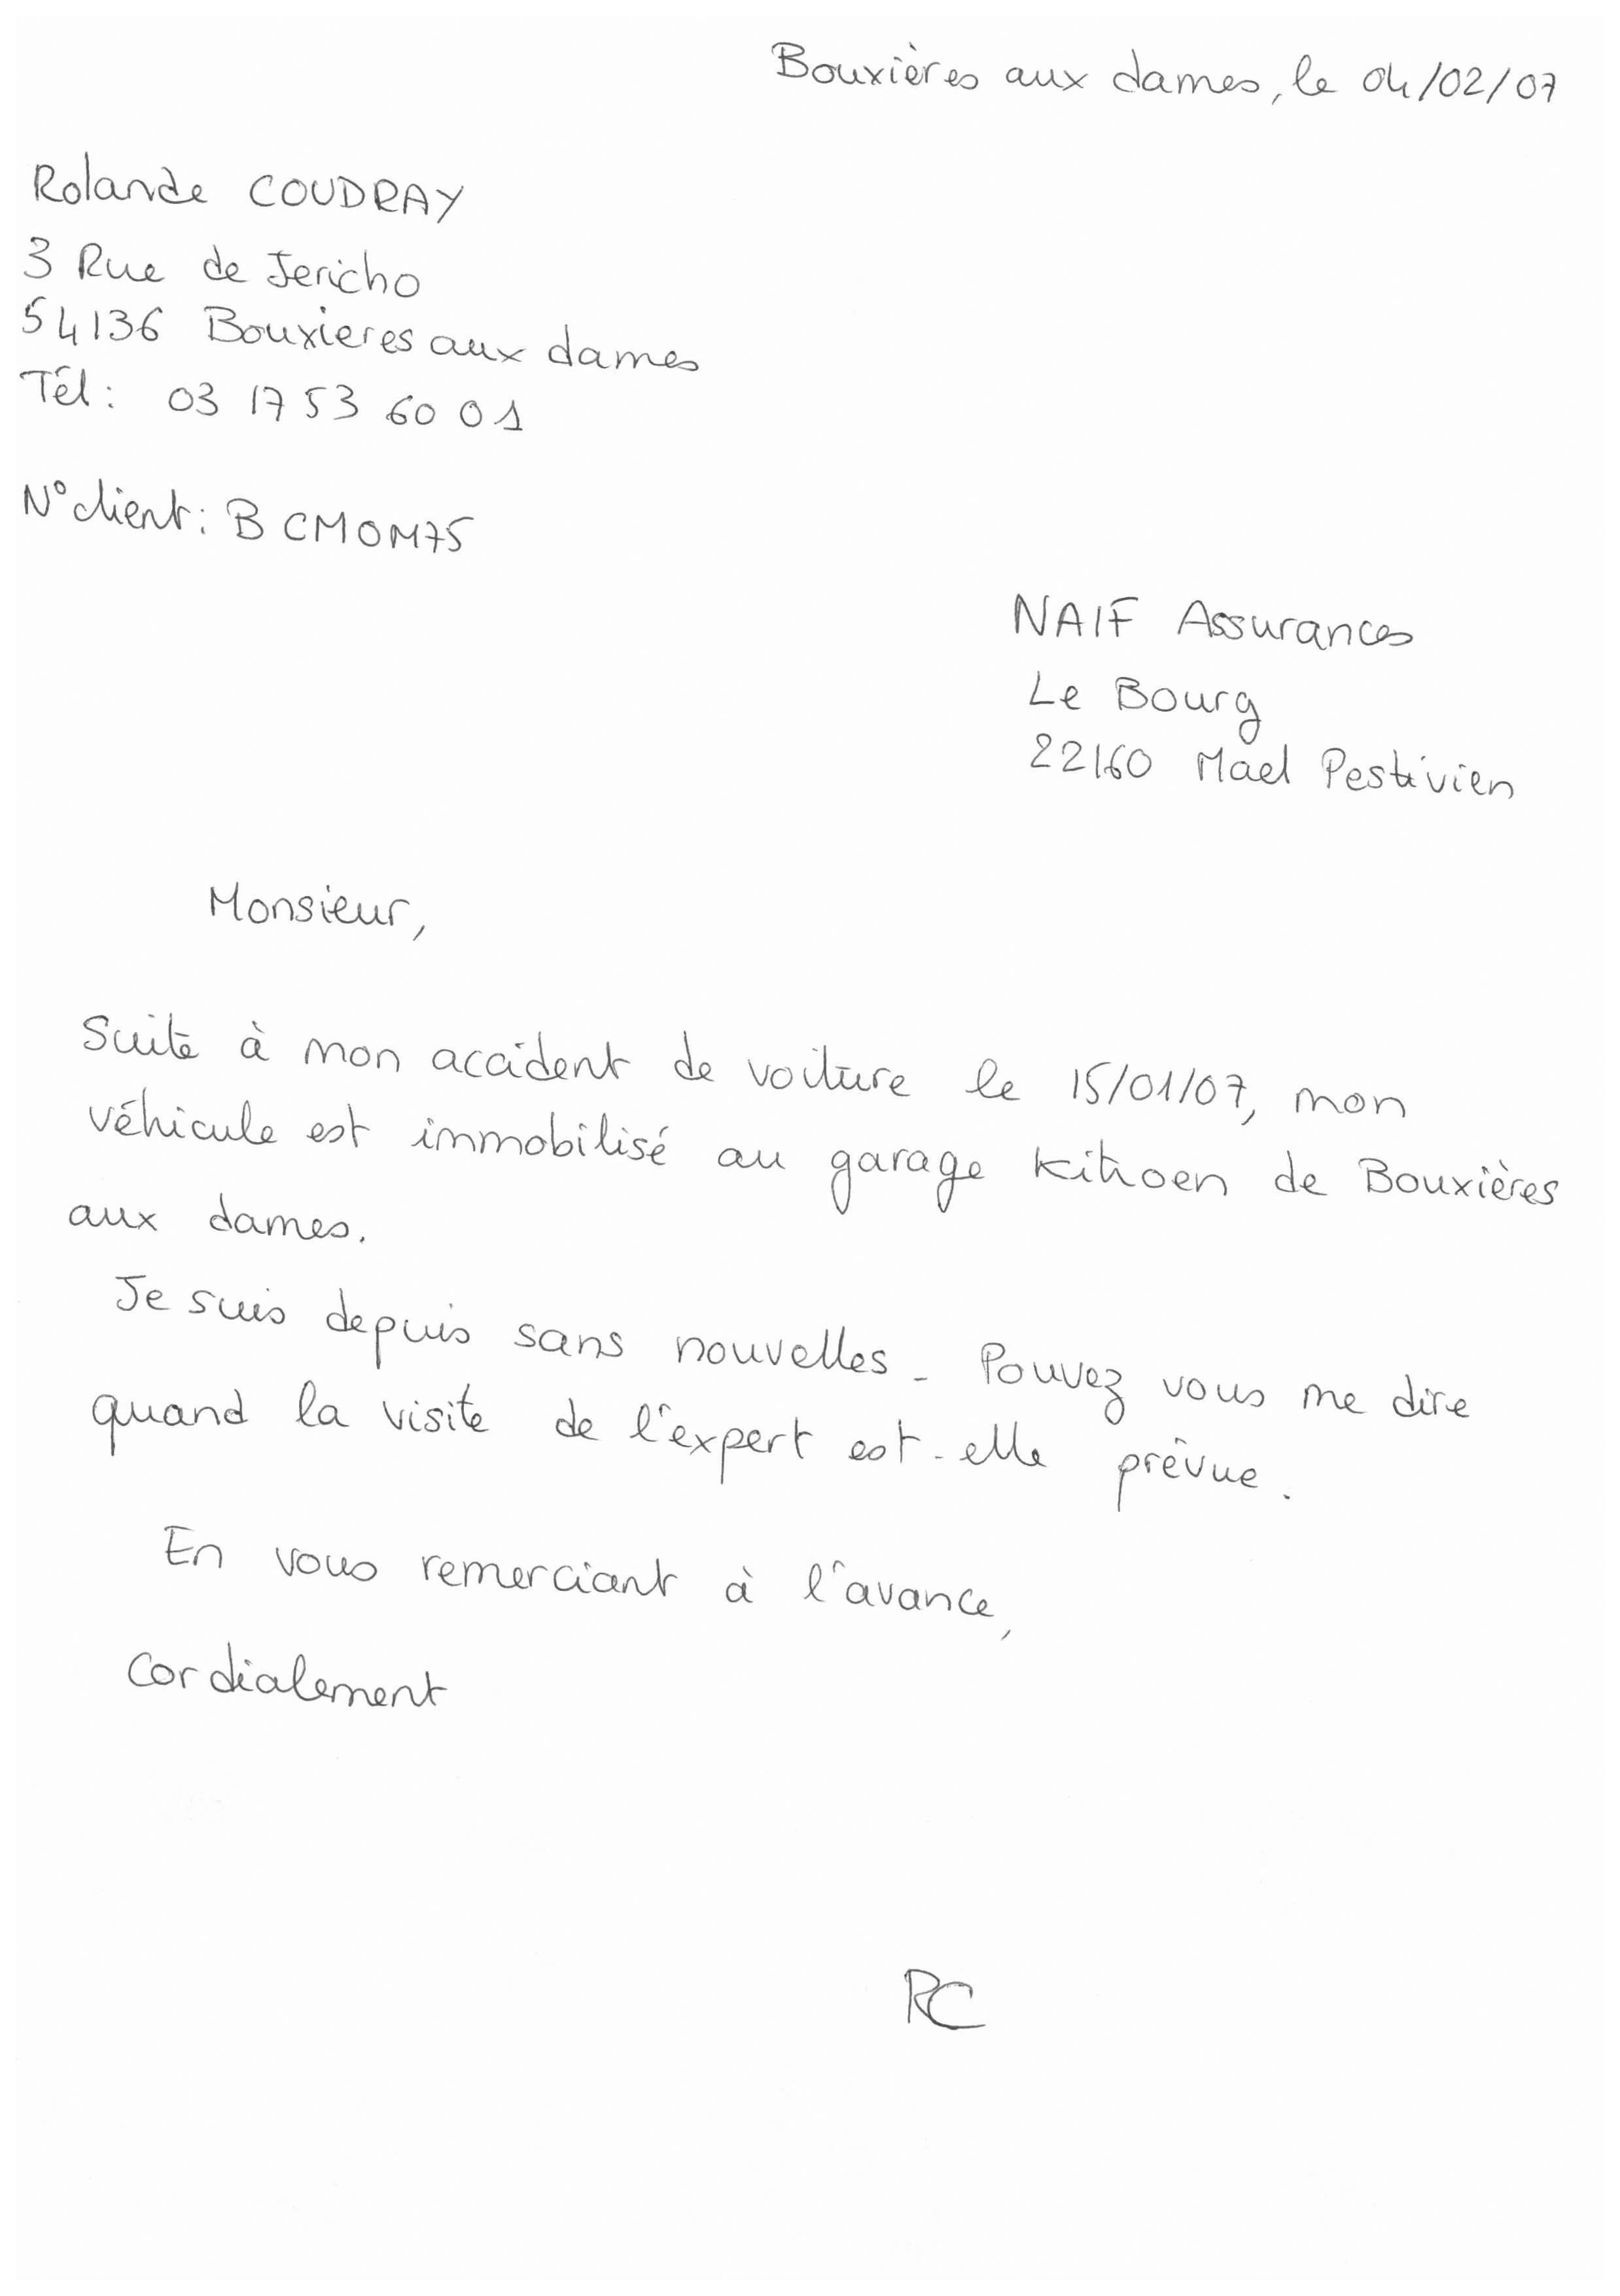 Bouxières aux dames, le 04/02/07
Rolande COUDRAY
3 Rue de Jericho
54136 Bouxieres aux dames
Tél : 03 17 53 60 01
N° client : B CMOM75
NAIF Assurances
Le Bourg
22160 Mael Pestivien
Monsieur,
Suite à mon accident de voiture le 15/01/07, mon
véhicule est immobilisé au garage Kitioen de Bouxières
aux dames.
Je suis depuis sans nouvelles - Pouvez vous me dire
quand la visite de l'expert est-elle prévue.
En vous remerciant à l'avance,
Cordialement
RC